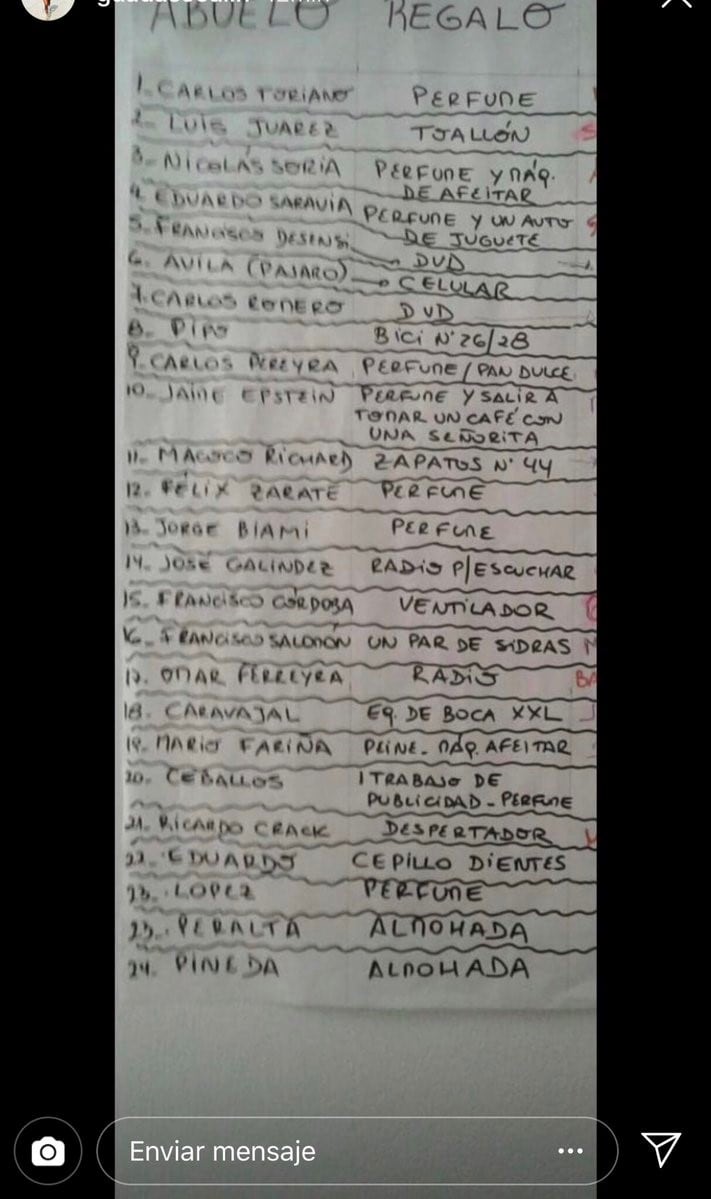 ABUELO REGALO
1- CARLOS TORIANO PERFUME
2- LUIS JUAREZ TOALLÓN
3- NICOLÁS SORIA PERFUME Y MÁQ.
DE AFEITAR
4. EDUARDO SARAVIA PERFUME Y UN AUTO
DE JUGUETE
5. FRANCISCO DESENSI DVD
6. AVILA (PAJARO) CELULAR
7. CARLOS ROMERO DVD
8- PIPO BICI N° 26/28
9. CARLOS PEREYRA PERFUME / PAN DULCE
10. JAIME EPSTEIN PERFUME Y SALIR A
TOMAR UN CAFÉ CON
UNA SEÑORITA
11. MACOCO RICHARD ZAPATOS N° 44
12. FÉLIX ZARATE PERFUME
13. JORGE BIAMI PERFUME
14. JOSÉ GALINDEZ RADIO P/ESCUCHAR
15. FRANCISCO CÓRDOBA VENTILADOR
16- FRANCISCO SALOMÓN UN PAR DE SIDRAS
17. OMAR FERREYRA RADIO
18. CARAVAJAL EQ. DE BOCA XXL
19. MARIO FARIÑA PEINE - MÁQ. AFEITAR
20. CEBALLOS 1 TRABAJO DE
PUBLICIDAD - PERFUME
21. RICARDO CRACK DESPERTADOR
22. EDUARDO CEPILLO DIENTES
23. LOPEZ PERFUME
23. PERALTA ALMOHADA
24. PINEDA ALMOHADA
Enviar mensaje